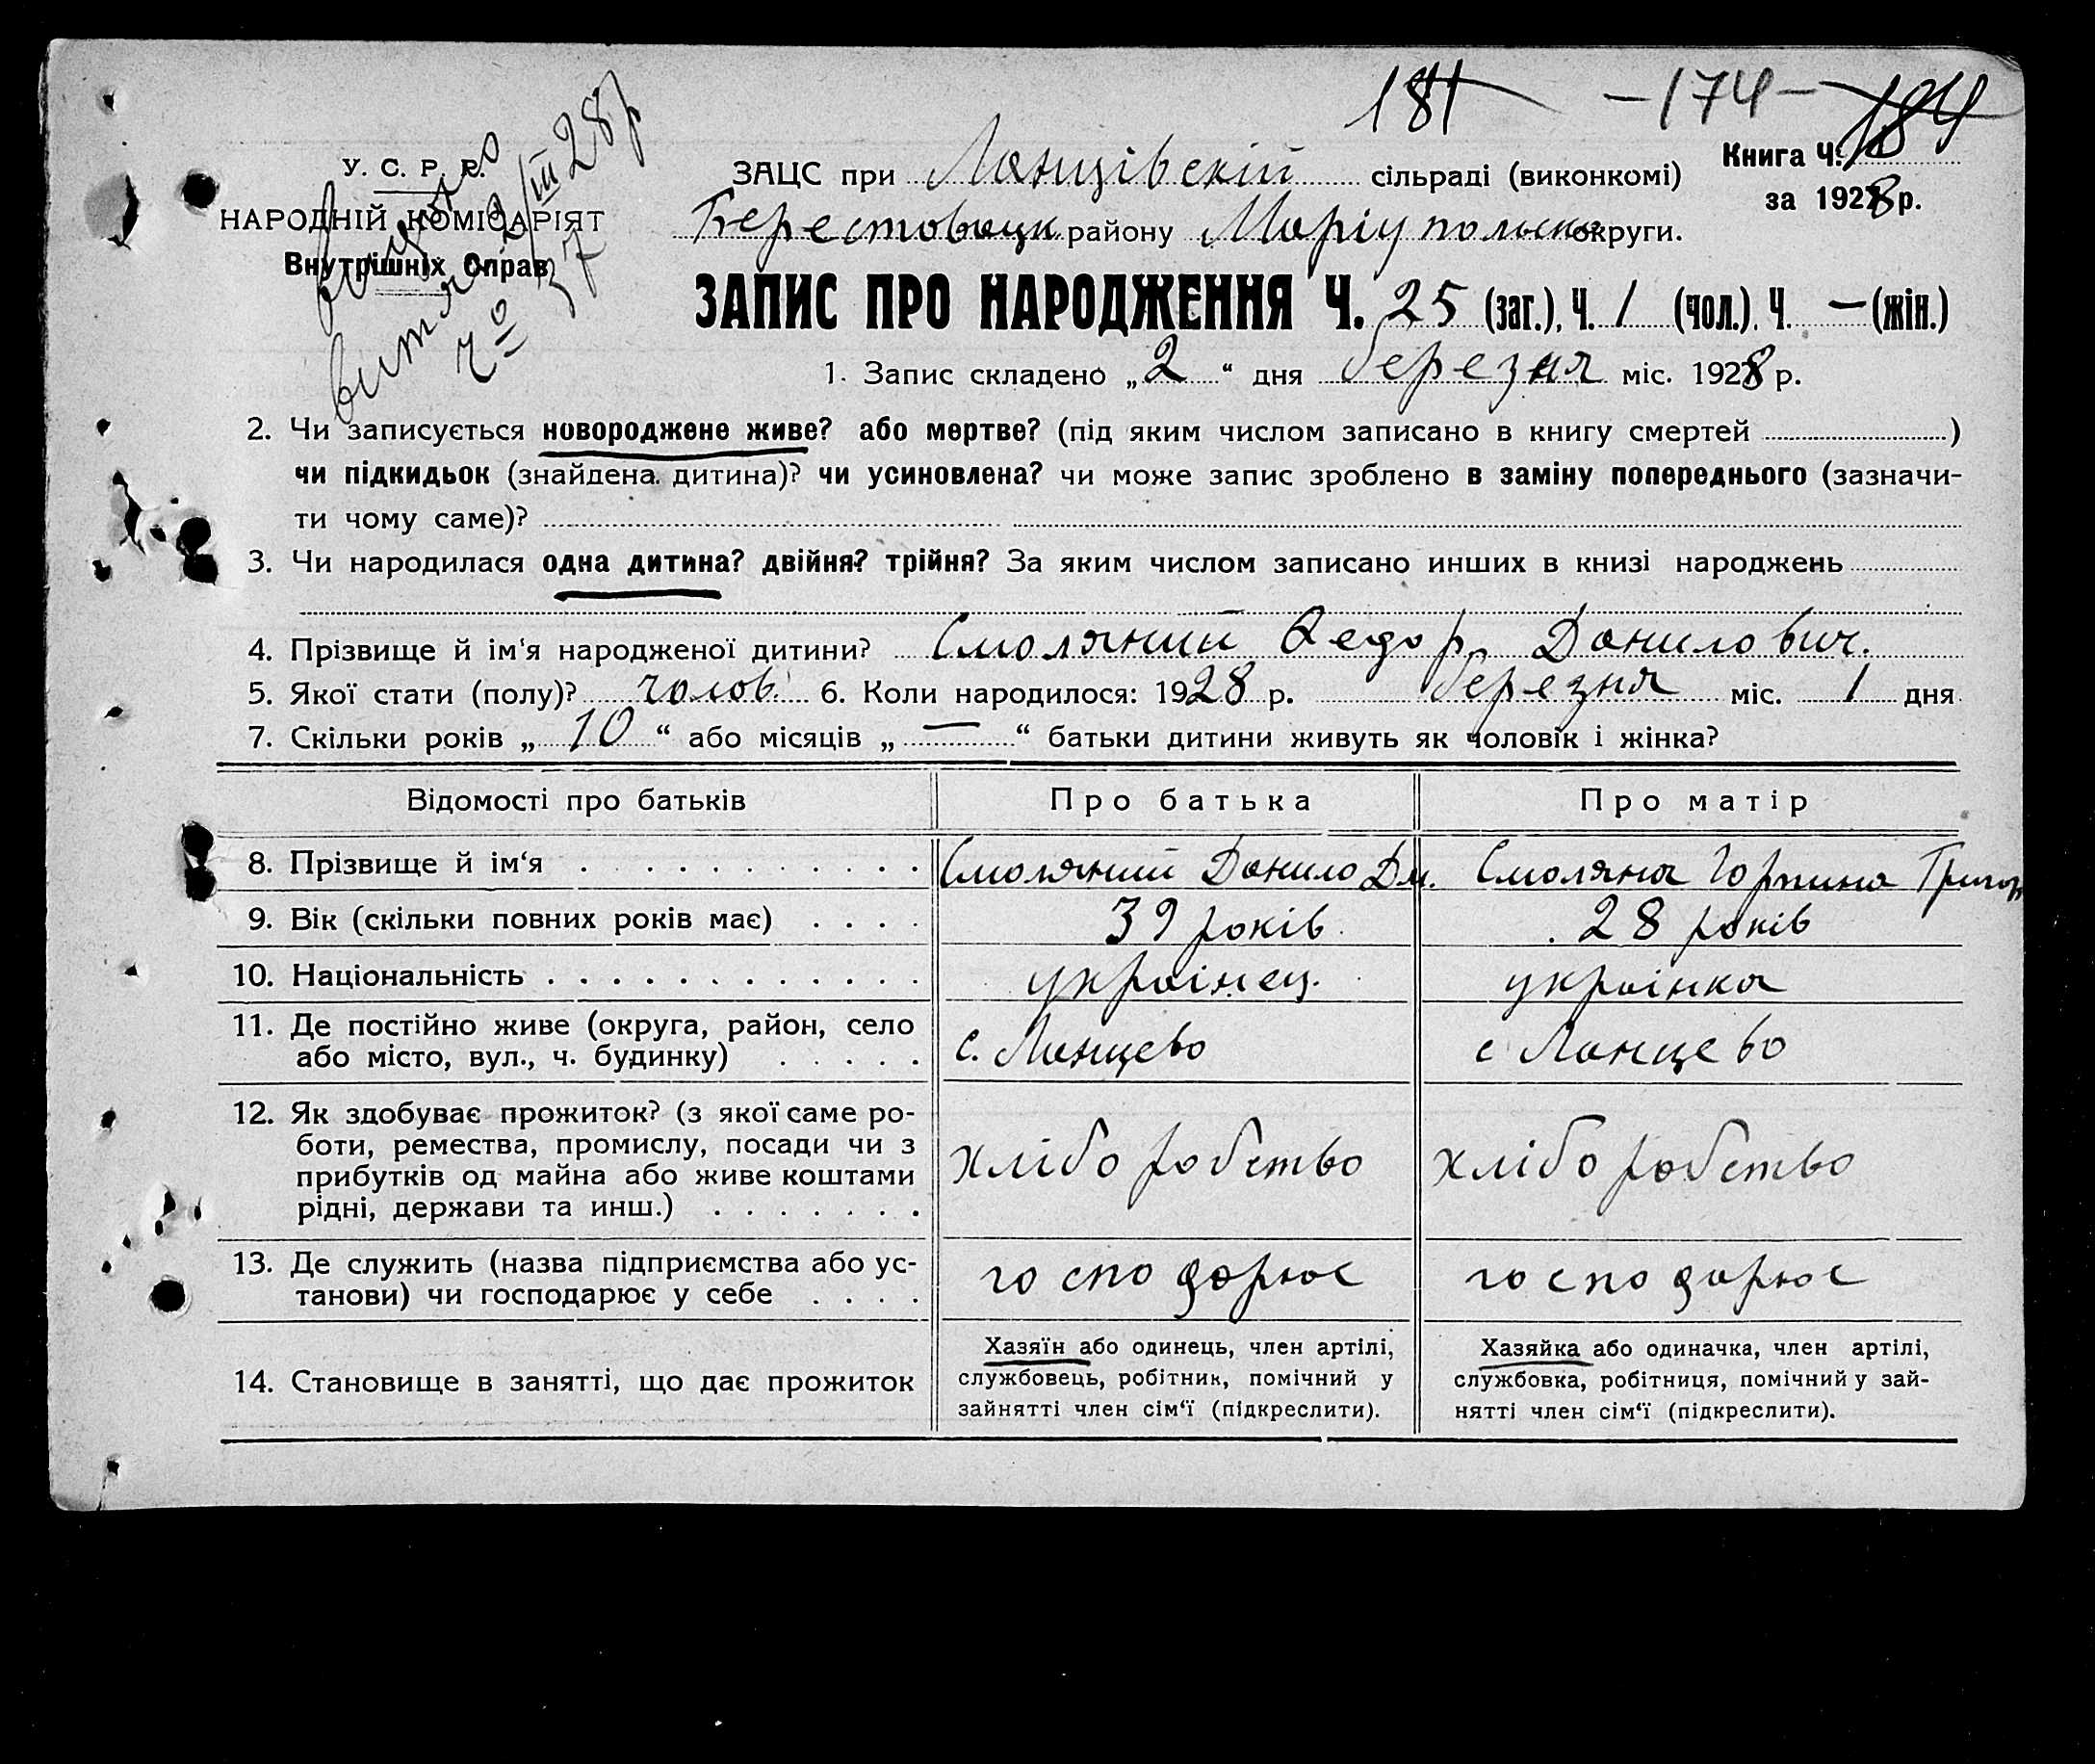 181 —174— 184
У. С. Р. Р.
НАРОДНІЙ КОМІСАРІЯТ
Внутрішніх Справ
витяг 2/III 28 р
ч° 37
ЗАЦС при Ланцівскій сільраді (виконкомі) Книга Ч.
за 1928 р.
Берестовецк району Маріупольськ округи.
ЗАПИС ПРО НАРОДЖЕННЯ Ч. 25 (заг.), Ч. 1 (чол.). Ч. — (жін.)
1. Запис складено „2“ дня березня міс. 1928 р.
2. Чи записується новороджене живе? або мертве? (під яким числом записано в книгу смертей )
чи підкидьок (знайдена дитина)? чи усиновлена? чи може запис зроблено в заміну попереднього (зазначи-
ти чому саме)?
3. Чи народилася одна дитина? двійня? трійня? За яким числом записано инших в книзі народжень
4. Прізвище й ім‘я народженої дитини? Смоляний Федор Данилович.
5. Якої стати (полу)? чолов. 6. Коли народилося: 1928 р. березня міс. 1 дня
7. Скільки років „10“ або місяців „—“ батьки дитини живуть як чоловік і жінка?
Відомості про батьків Про батька Про матір
8. Прізвище й ім‘я Смоляний Данило Дм. Смоляна Горпина Григор
9. Вік (скільки повних років має) 39 років 28 років
10. Національність українец. українка
11. Де постійно живе (округа, район, село
або місто, вул., ч. будинку) с. Ланцево с Ланцево
12. Як здобуває прожиток? (з якої саме ро-
боти, ремества, промислу, посади чи з
прибутків од майна або живе коштами
рідні, держави та инш.) хліборобство хліборобство
13. Де служить (назва підприємства або ус-
танови) чи господарює у себе господарює господарює
14. Становище в занятті, що дає прожиток
Хазяїн або одинець, член артілі,
службовець, робітник, помічний у
зайнятті член сім‘ї (підкреслити).
Хазяйка або одиначка, член артілі,
службовка, робітниця, помічний у зай-
нятті член сім‘ї (підкреслити).